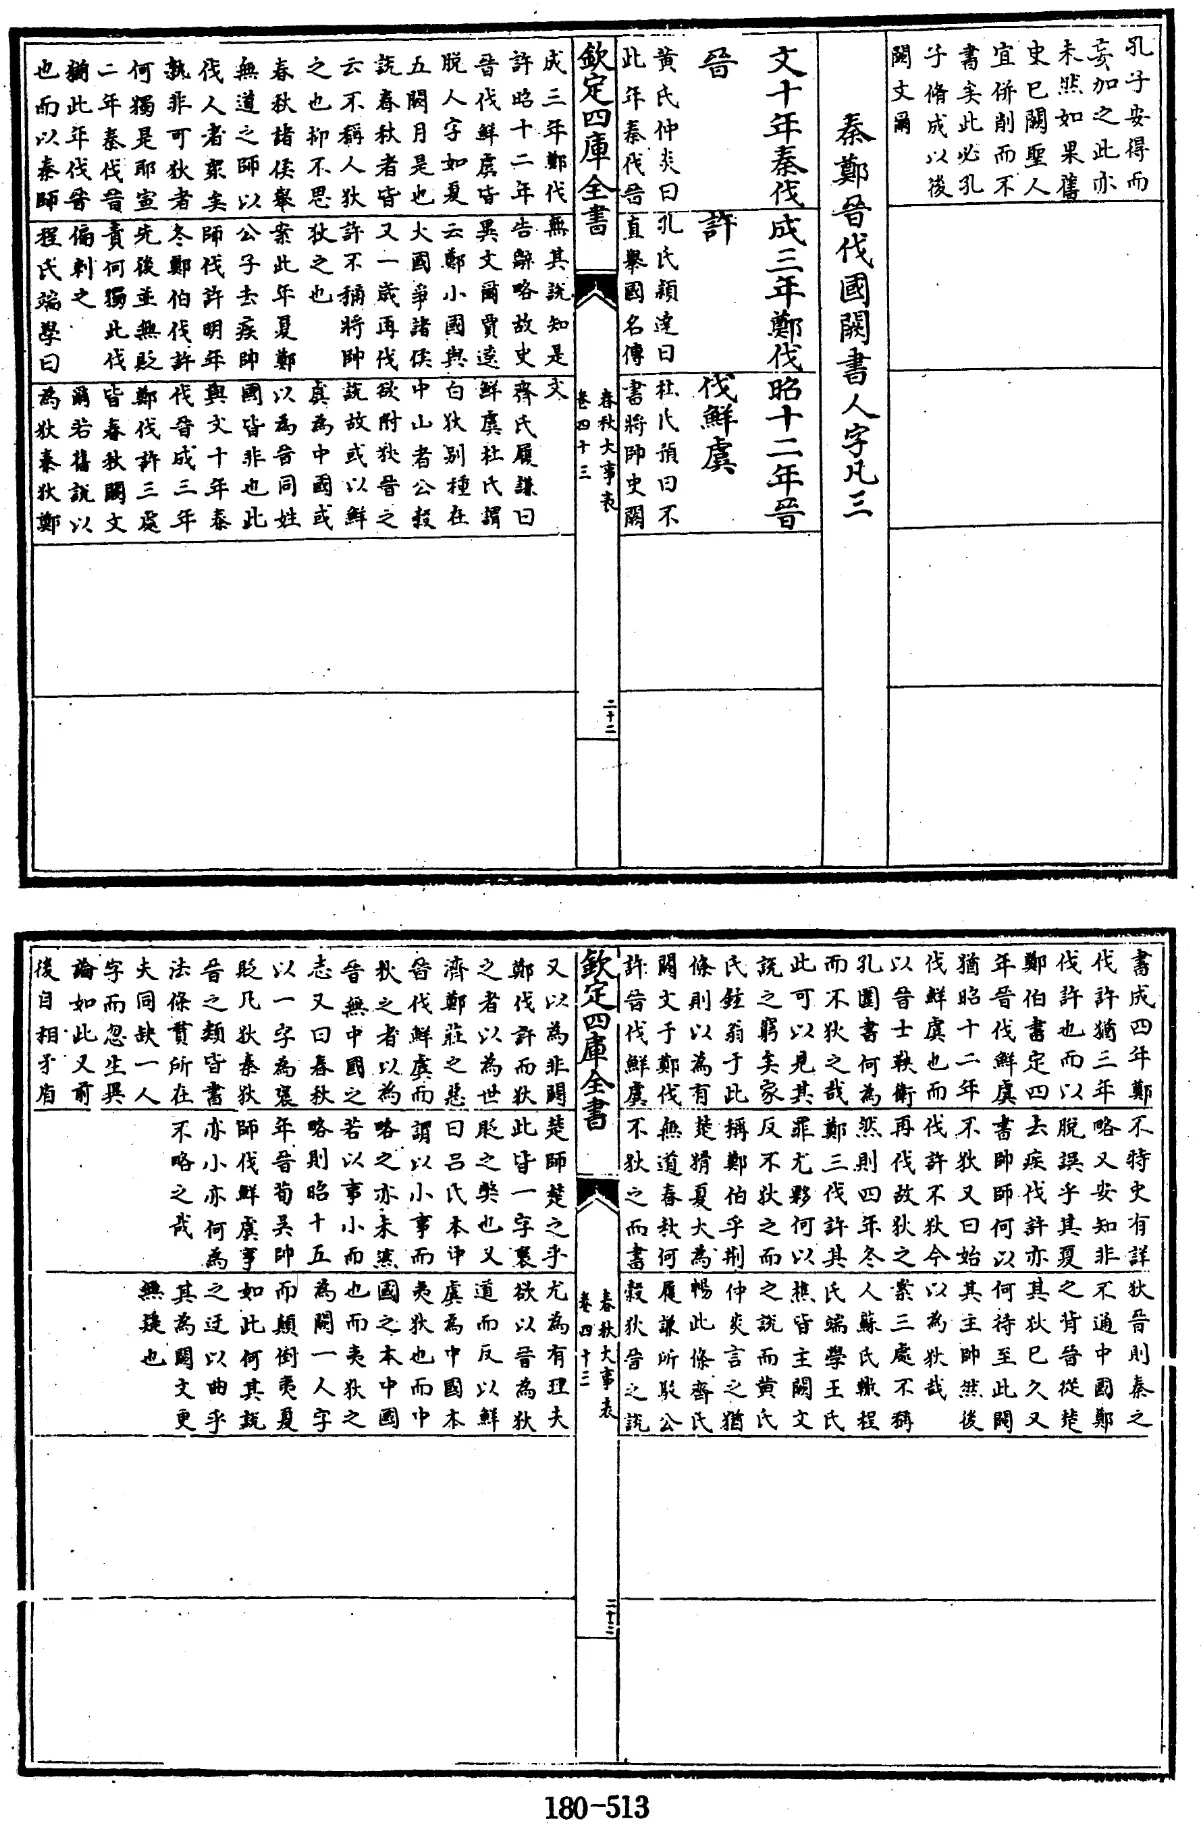 孔子安得而
妄加之此亦
未然如果舊
史已闕聖人
宜併削而不
書矣此必孔
子脩成以後
闕文爾
秦鄭晉伐國闕書人字凡三
文十年秦伐
晉
成三年鄭伐
許
昭十二年晉
伐鮮虞
黄氏仲炎曰
此年秦伐晉
孔氏穎達曰
直舉國名傳
杜氏預曰不
書將帥史闕
欽定四庫全書
春秋大事表
卷四十三
二十二
成三年鄭伐
許昭十二年
晉伐鮮虞皆
脱人字如夏
五闕月是也
說春秋者皆
云不稱人狄
之也抑不思
春秋諸侯舉
無道之師以
伐人者衆矣
孰非可狄者
何獨是耶宣
二年秦伐晉
猶此年伐晉
也而以秦師
無其說知是
告辭略故史
異文爾賈逵
云鄭小國與
大國爭諸侯
又一歲再伐
許不稱將帥
狄之也
案此年夏鄭
公子去疾帥
師伐許明年
冬鄭伯伐許
先後並無貶
責何獨此伐
偏刺之
程氏端學曰
文
齊氏履謙曰
鮮虞杜氏謂
白狄别種在
中山者公榖
欲附狄晉之
說故或以鮮
虞為中國或
以為晉同姓
國皆非也此
與文十年秦
伐晉成三年
鄭伐許三處
皆春秋闕文
爾若舊說以
為狄秦狄鄭
書成四年鄭
伐許猶三年
伐許也而以
鄭伯書定四
年晉伐鮮虞
猶昭十二年
伐鮮虞也而
以晉士鞅衛
孔圉書何為
而不狄之哉
此可以見其
說之窮矣家
氏鉉翁于此
條則以為有
闕文于鄭伐
許晉伐鮮虞
不特史有詳
略又安知非
脱誤乎其夏
去疾伐許亦
書帥師何以
不狄又曰始
伐許不狄今
再伐故狄之
然則四年冬
鄭三伐許其
罪尤夥何以
反不狄之而
稱鄭伯乎荆
楚猾夏大為
無道春秋何
不狄之而書
狄晉則秦之
不通中國鄭
之背晉從楚
其狄已久又
何待至此闕
其主帥然後
以為狄哉
案三處不稱
人蘇氏轍程
氏端學王氏
樵皆主闕文
之說而黄氏
仲炎言之猶
暢此條齊氏
履謙所駁公
榖狄晉之說
欽定四庫全書
春秋大事表
卷四十三
二十三
又以為非闕
鄭伐許而狄
之者以為世
濟鄭莊之惡
晉伐鮮虞而
狄之者以為
晉無中國之
志又曰春秋
以一字為褒
貶凡狄秦狄
晉之類皆書
法條貫所在
夫同缺一人
字而忽生異
論如此又前
後自相矛盾
楚師楚之乎
此皆一字褒
貶之弊也又
曰吕氏本中
謂以小事而
略之亦未然
若以事小而
略則昭十五
年晉荀吳帥
師伐鮮虞事
亦小亦何為
不略之哉
尤為有理夫
欲以晉為狄
道而反以鮮
虞為中國本
夷狄也而中
國之本中國
也而夷狄之
為闕一人字
而顛倒夷夏
如此何其說
之迂以曲乎
其為闕文更
無疑也
180-513